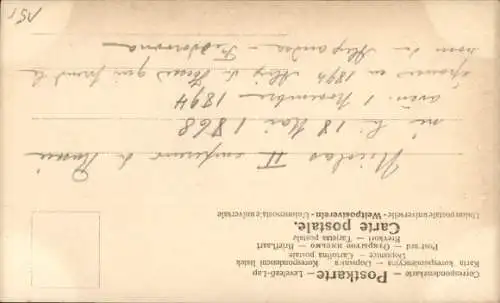 Correspondenzkarte — Postkarte — Levelező-Lap
Karta korespondencyjna - Dopisnica - Korespondenční lístek
Dopisnice — Cartolina postale
Post card — Открытое письмо — Briefkaart
Brevkort — Tarjetas postale
Carte postale.
Union postale universelle - Weltpostverein - Unione postale universale
Nicolas II empereur de Russie
né le 18 Mai 1868
avèn. 1 Novembre 1894
épouse en 1894 Alix de Hesse qui prend le
nom de Alexandra - Feodorovna